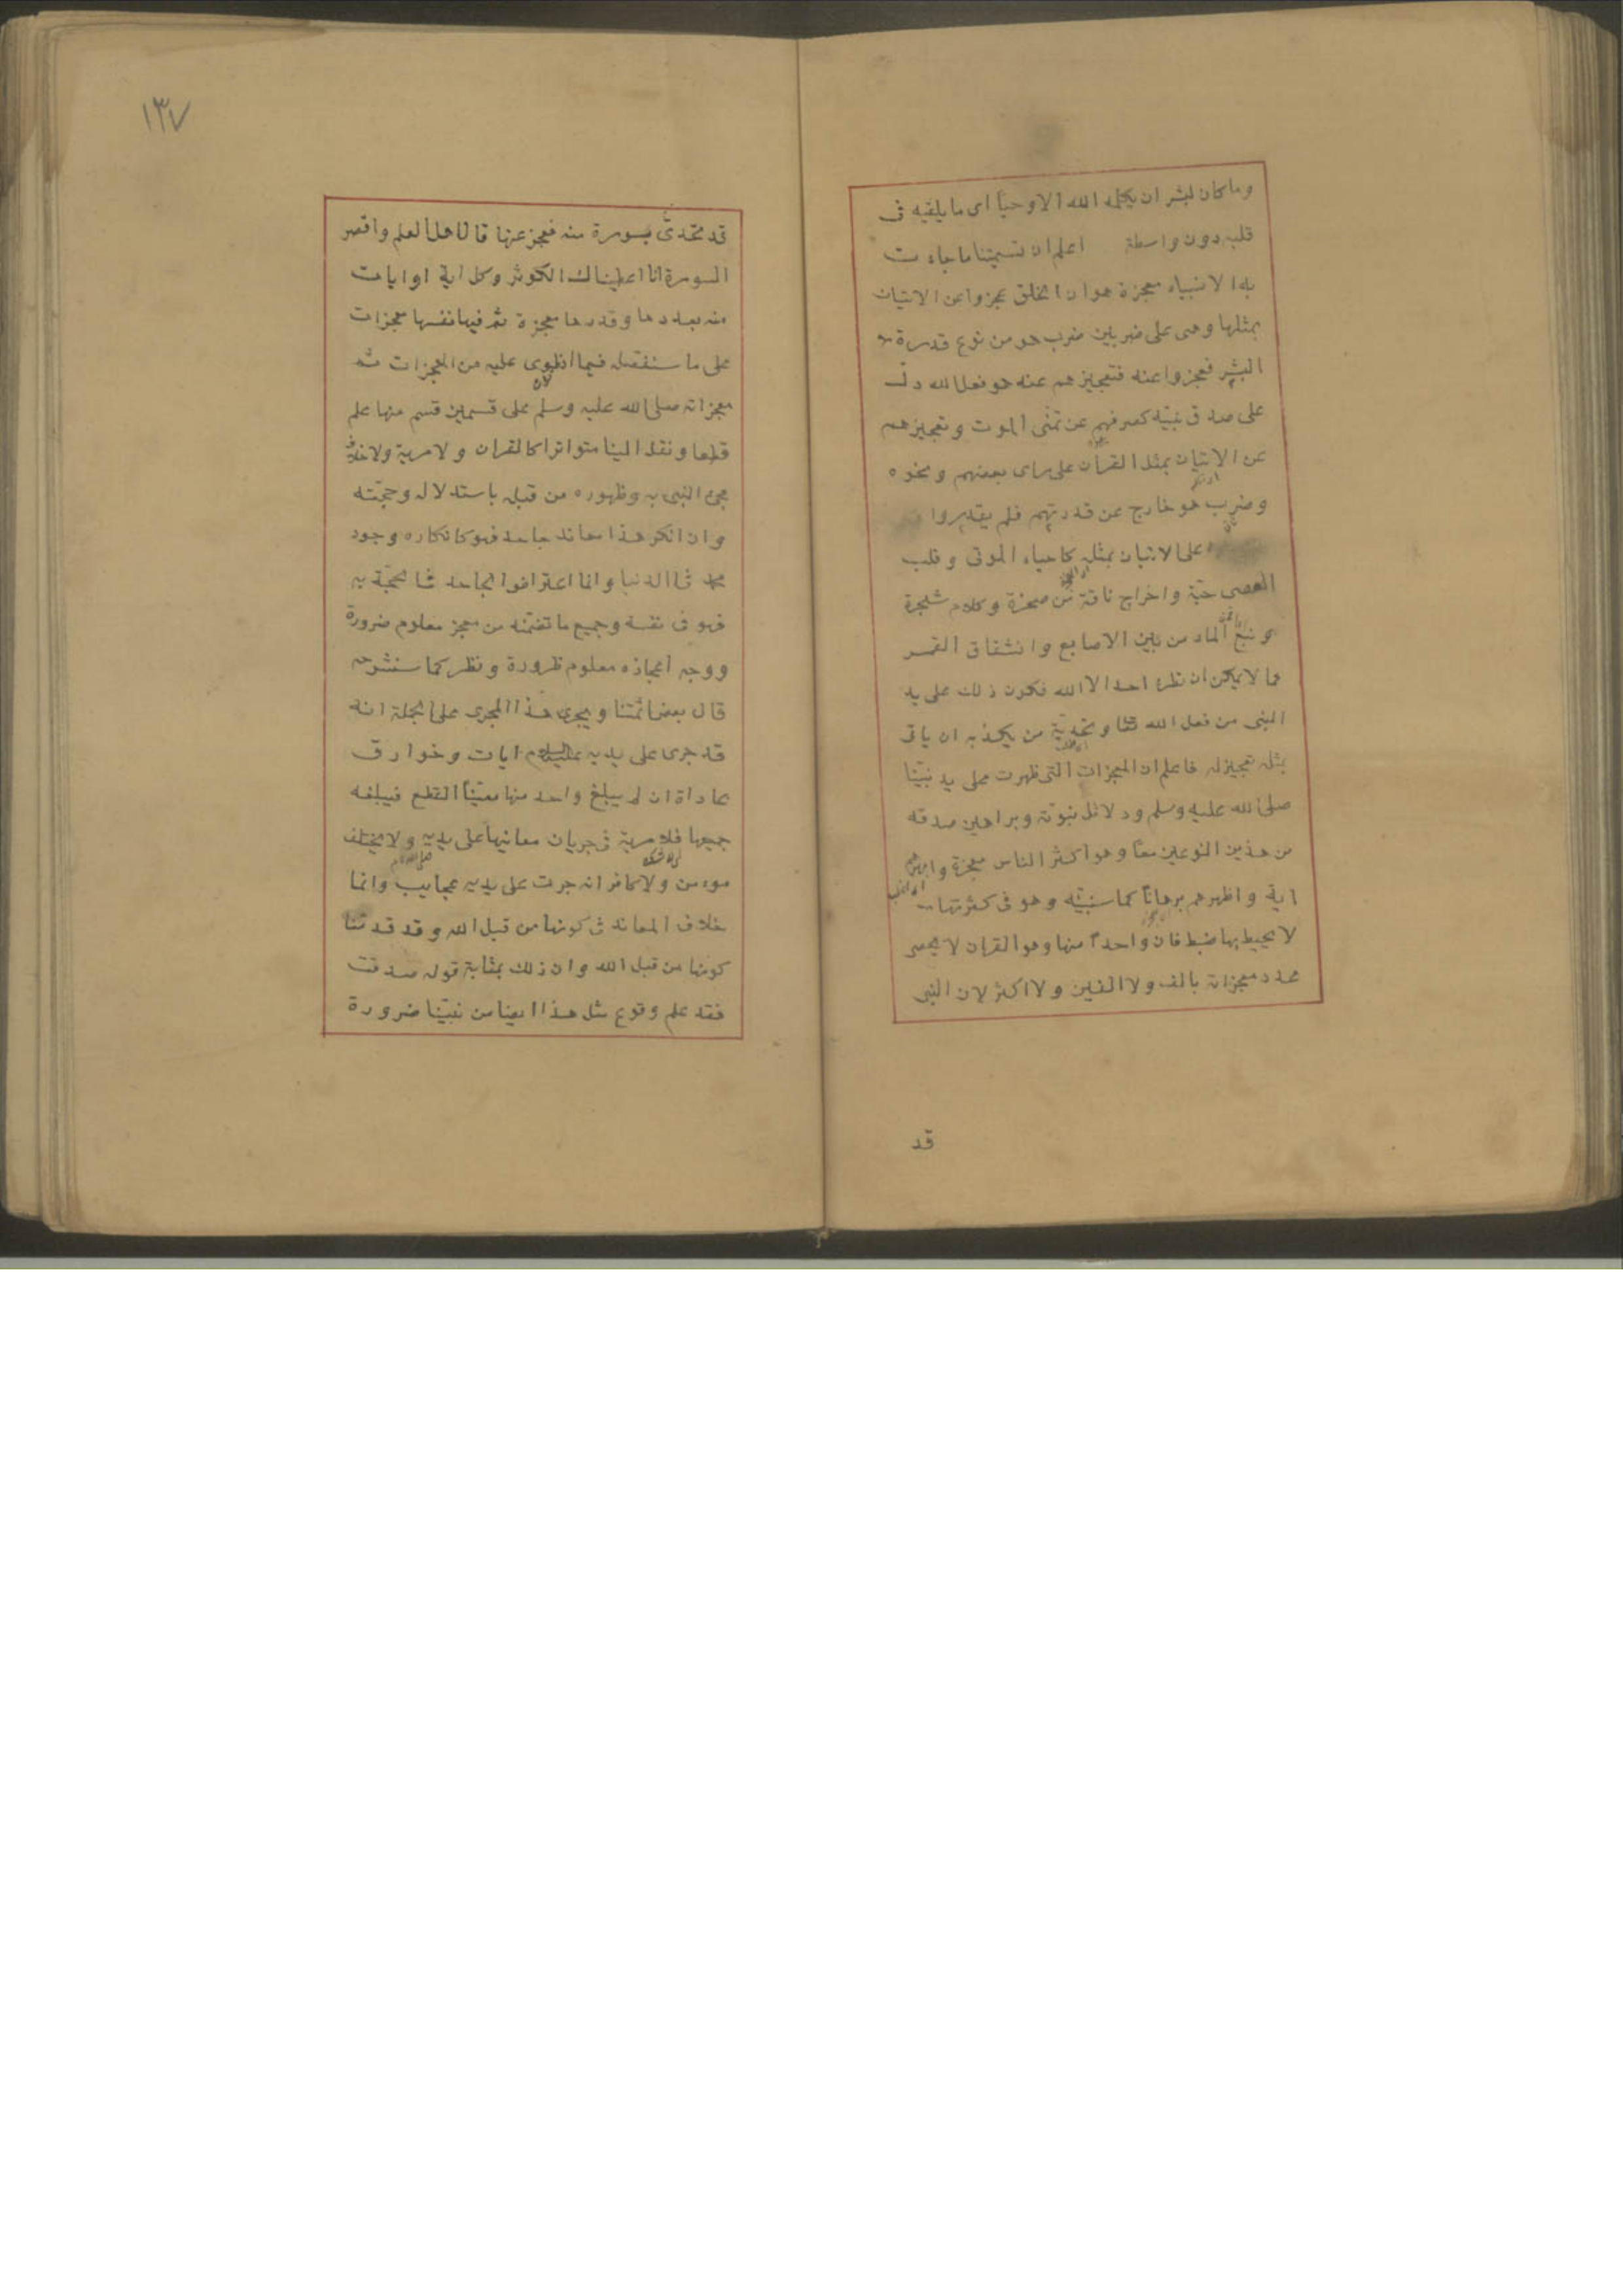 وما كان لبشر ان يكلمه الله الا وحيا اى ما يلقيه فى
قلبه دون واسطة اعلم ان تسميتنا ما جاءت
به الانبياء معجزة هو ان الخلق عجزوا عن الاتيان
بمثلها وهى على ضربين ضرب هو من نوع قدرة
البشر فعجزوا عنه فتعجيزهم عنه هو فعل الله دل
على صدق نبيه كصرفهم عن تمنى الموت وتعجيزهم
عن الاتيان بمثل القرآن على راى بعضهم ونحوه
وضرب هو خارج عن قدرتهم فلم يقدروا
على الاتيان بمثله كاحياء الموتى وقلب
العصى حية واخراج ناقة من صخرة وكلام شجرة
ونبع الماء من بين الاصابع وانشقاق القمر
مما لا يمكن ان احد الا الله فكون ذلك على يد
النبى من فعل الله تعا وتحديه من يكذبه ان ياتى
بمثله تعجيز له فاعلم ان المعجزات التى ظهرت على يد نبينا
صلى الله عليه وسلم ودلائل نبوته وبراهين صدقه
من هذين النوعين معا وهو اكثر الناس معجزة وابهرهم
اية واظهرهم برهانا كما سنبينه وهو فى كثرتها
لا يحيط بها ضبط فان واحدا منها وهو القران لا يحصر
عدد معجزاته بالف ولا الفين ولا اكثر لان النبى
قد
١٣٧
قد تحدى بسورة منه فعجز عنها قال اهل العلم واقصر
السورة انا اعطيناك الكوثر وكل اية او ايات
منه بعددها وقدرها معجزة ثم فيها نفسها معجزات
على ما سنفصله فيما انطوى عليه من المعجزات ثم
معجزاته صلى الله عليه وسلم على قسمين قسم منها علم
قطعا ونقل الينا متواترا كالقران ولا مرية ولا خلاف
مجئ النبى به وظهوره من قبله باستدلاله وحجته
وان انكر هذا معاند جاحد فهو كانكاره وجود
محمد فى الدنيا وانما اعتراض الجاحد فى الحجة به
فهو فى نفسه وجميع ما تضمنه من معجز معلوم ضرورة
ووجه اعجازه معلوم ضرورة ونظر كما سنشرحه
قال بعض ائمتنا ويجرى هذا المجرى على الجملة انه
قد جرى على يديه عليه السلام ايات وخوارق
عاداة ان لم يبلغ واحد منها معينا القطع فيبلغه
جميعها فلا مرية فى جريان معانيها على يديه ولا يختلف
مومن ولا كافر انه جرت على يديه عجايب وانما
خلاف المعاند فى كونها من قبل الله وقد قدمنا
كونها من قبل الله وان ذلك بمثابة قوله صدقت
فقد علم وقوع مثل هذا ايضا من نبينا ضرورة